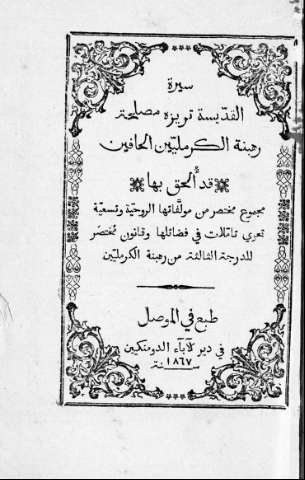 سيرة
القديسة تريزه مصلحة
رهبنة الكرمليين الحافين
قد ألحق بها
مجموع مختصر من مولفاتها الروحية وتسعية
تحوي تاملات في فضائلها وقانون مختصر
للدرجة الثالثة من رهبنة الكرمليين
طبع في الموصل
في دير الآباء الدومنكيين
سنة ١٨٦٧